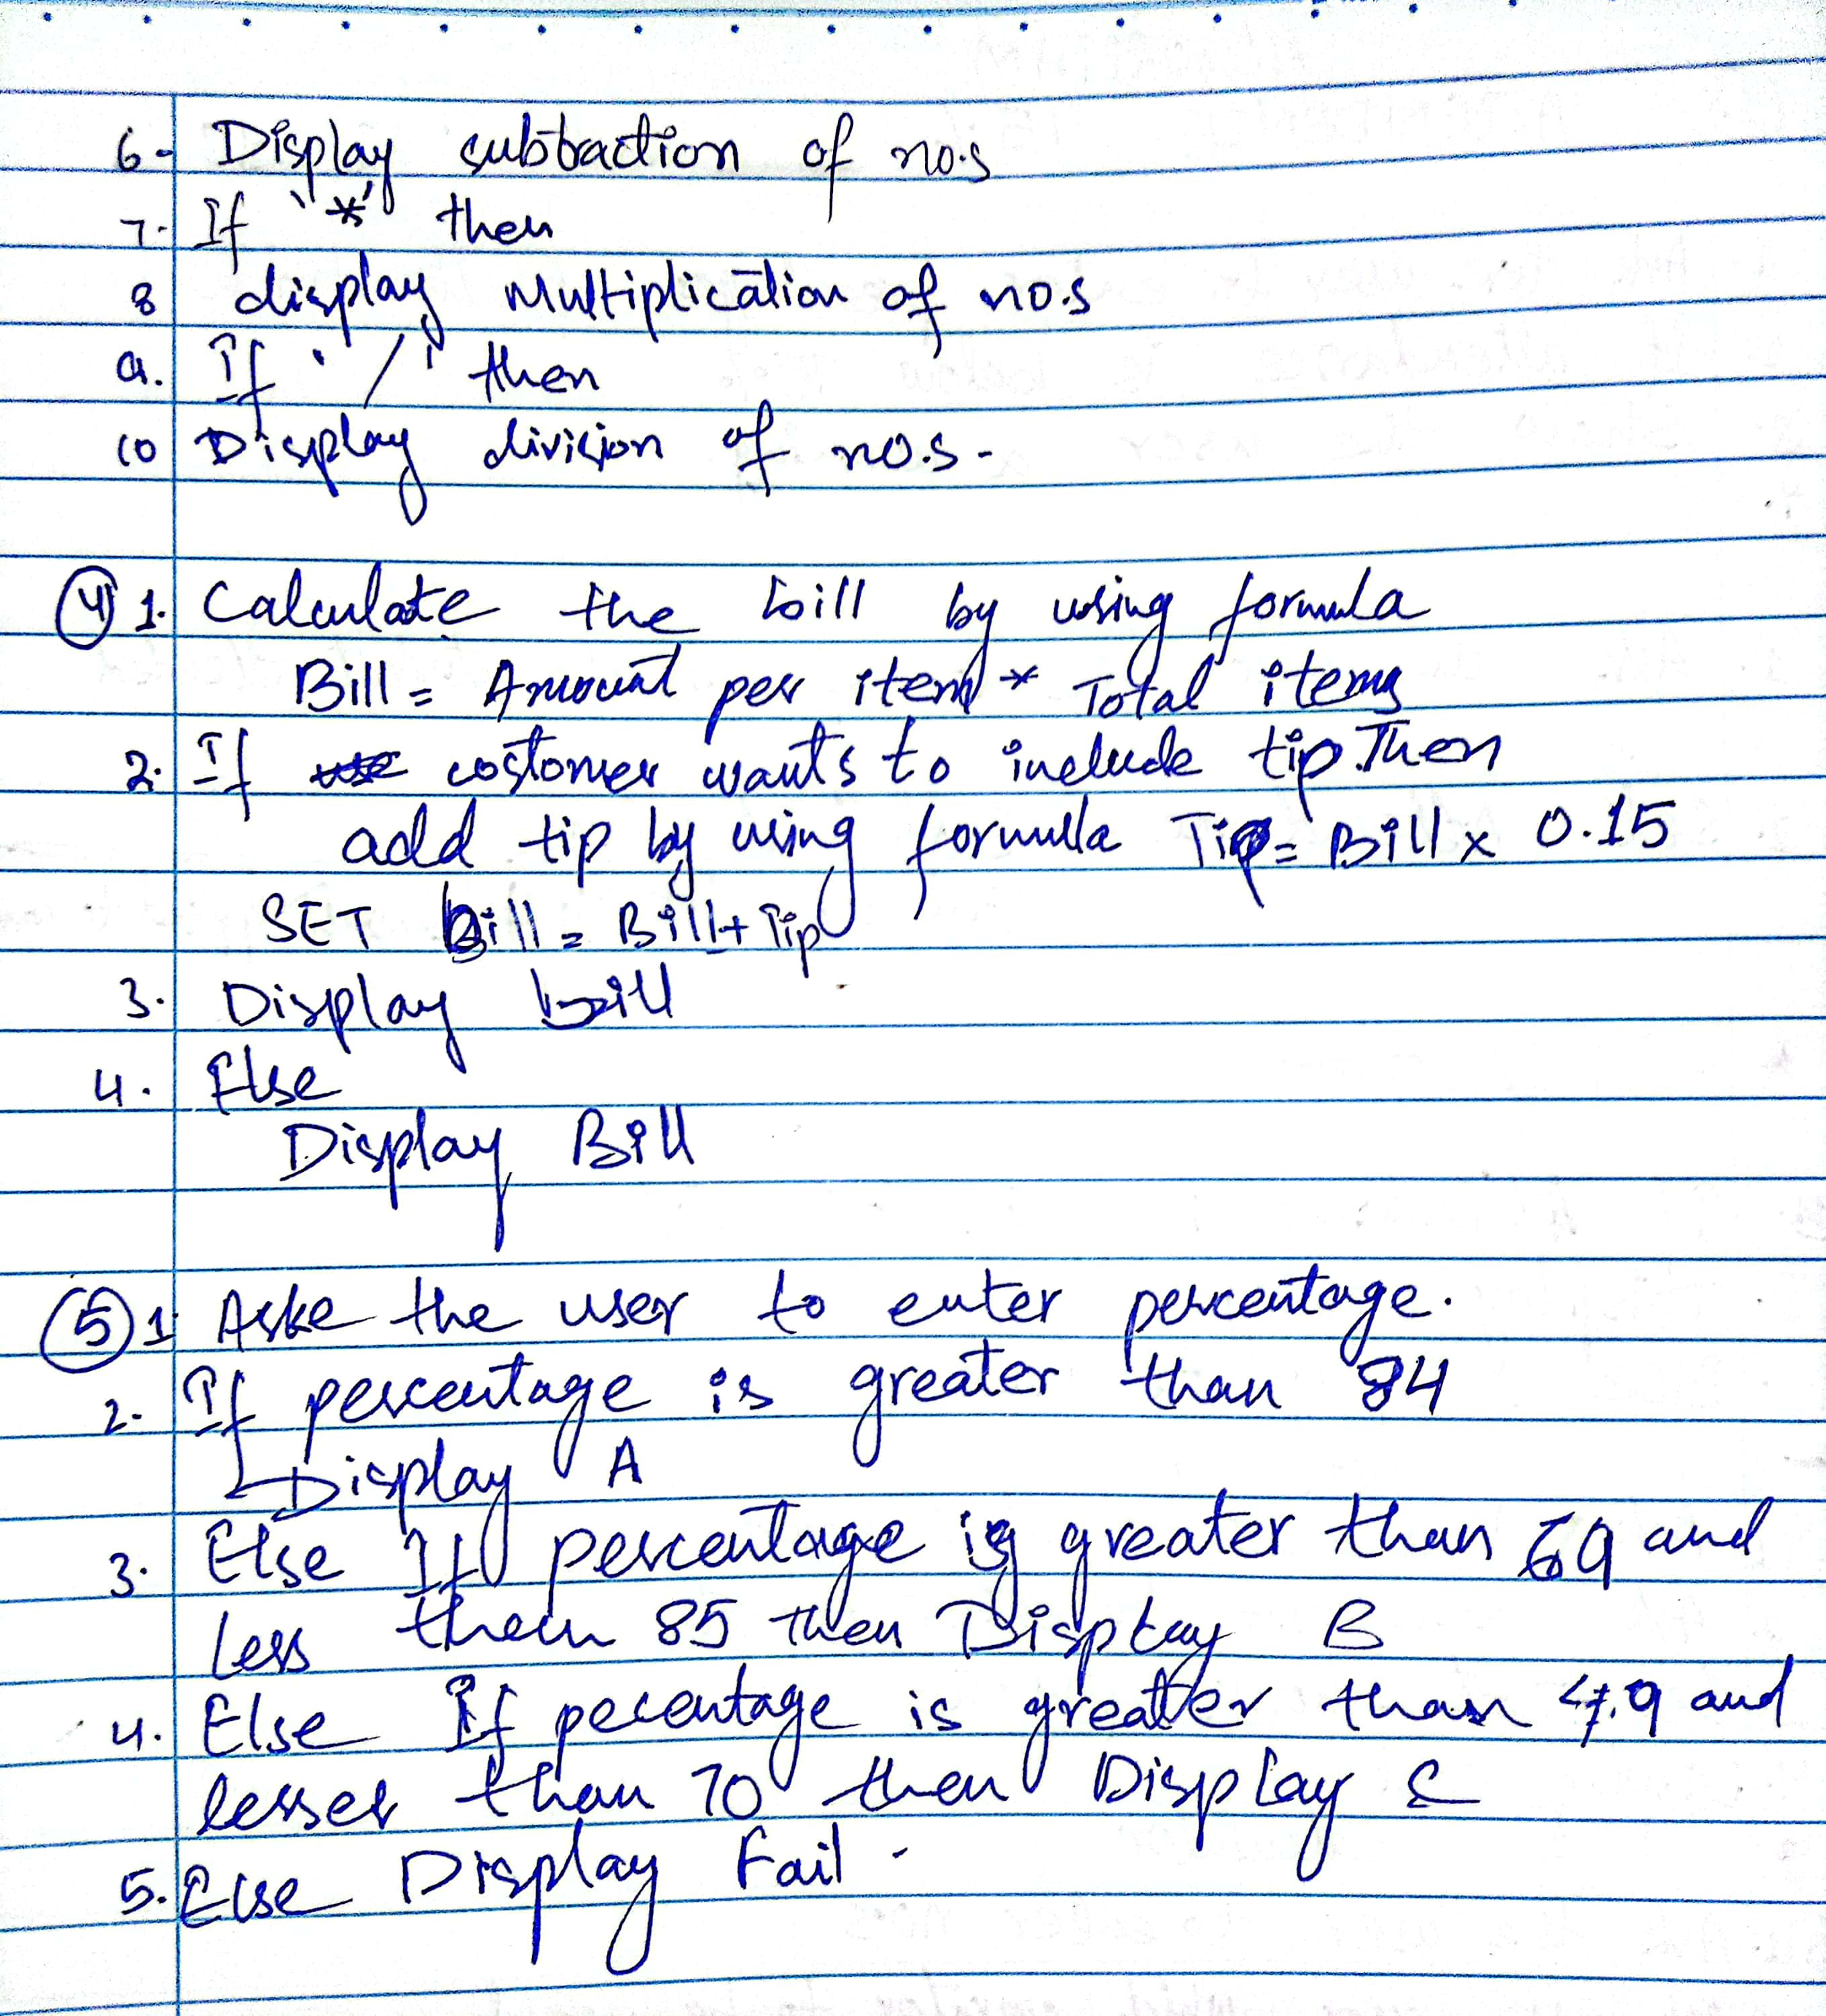 6- Display subtraction of no.s
7. If "*" then
8 display Multiplication of no.s
9. If '/' then
10 Display division of no.s-
4 1. Calculate the bill by using formula
Bill = Amount per item * Total items
2. If costomer wants to include tip.Then
add tip by using formulla Tip = Bill x 0.15
SET bill = Bill + Tip
3. Display bill
4. Else
Display Bill
5 1 Aske the user to enter percentage.
2. If percentage is greater than 84
Display A
3. Else If percentage is greater than 69 and
Less then 85 then Display B
4. Else If pecentage is greatter than 49 and
lesser than 70 then Display C
5. Else Display Fail.